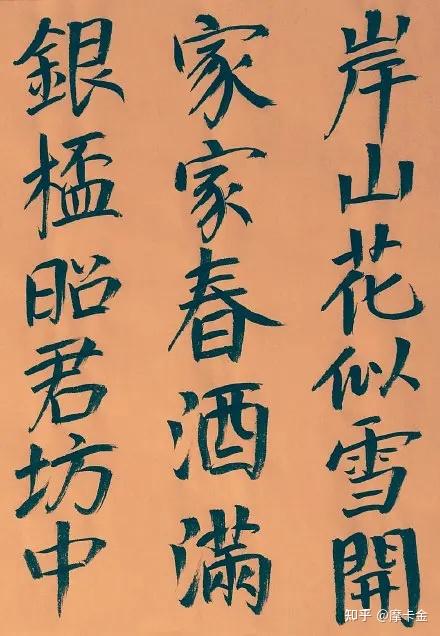 岸山花似雪開
家家春酒滿
銀杯昭君坊中
知乎 @摩卡金